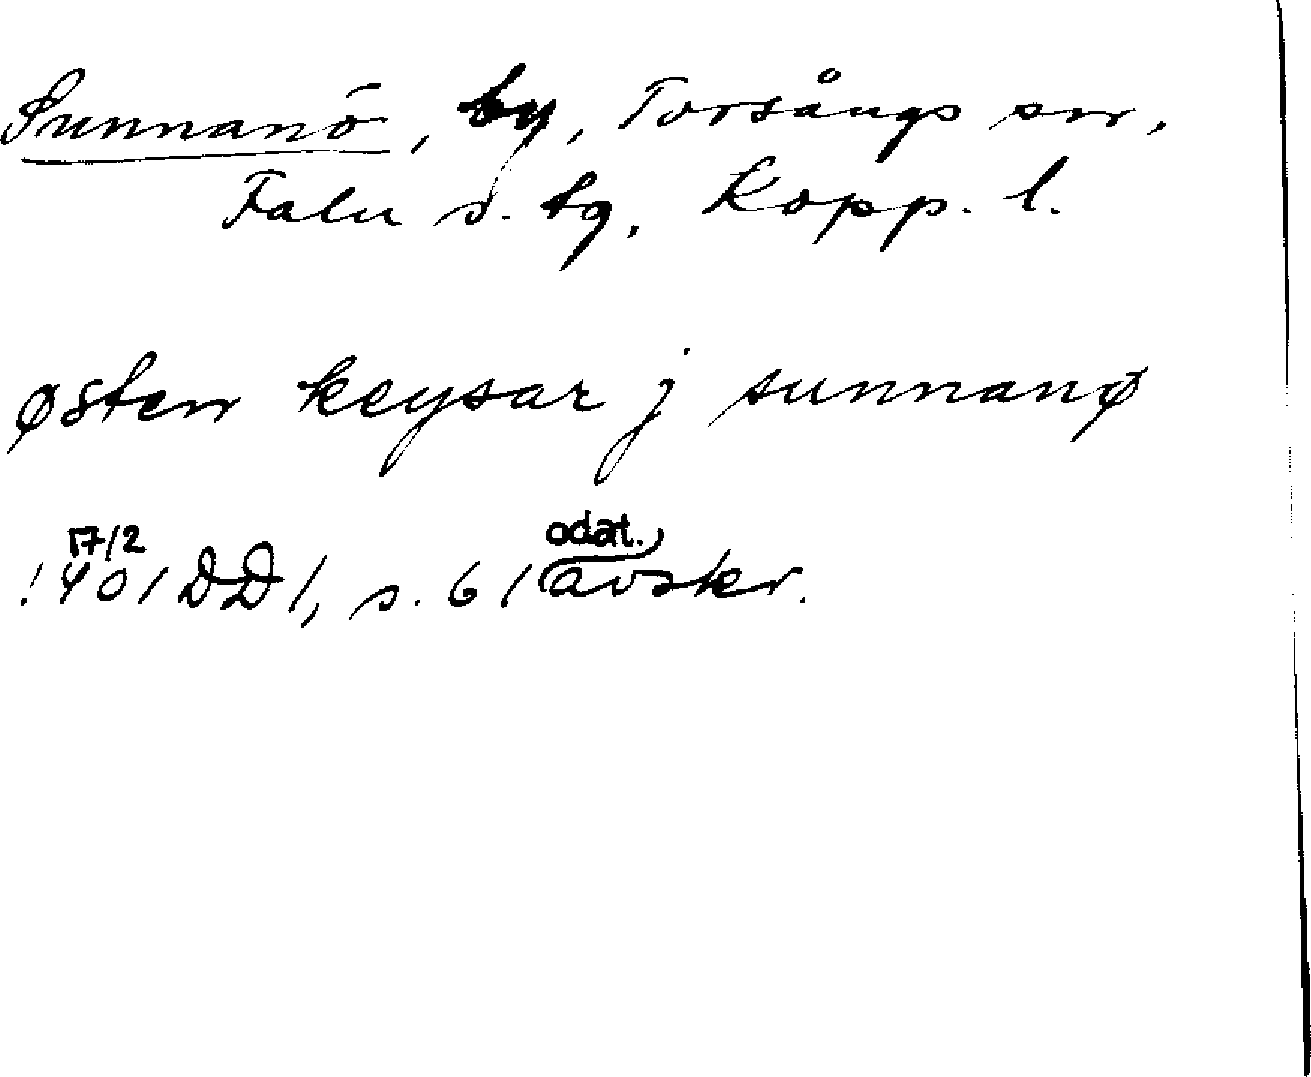 Sunnanö, by, Torsångs sn,
Falu s. bg, Kopp. l.
østen keysar j sunnanø
17/2 odat.
1401 DD 1, s. 61 avskr.